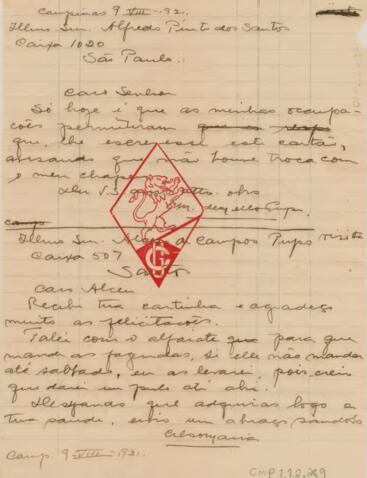 Campinas 9 VIII - 921.
Illmo Snr. Alfredo Pinto dos Santos
Caixa 1020
São Paulo.
Caro Senhor
Só hoje é que as minhas occupa-
ções permittiram
que, lhe escrevesse esta carta,
avisando que não houve troca com
o meu chapeu
De V.S.
Illmo Snr. Alceu de Campos Pupo
Caixa 507
Santos
Caro Alceu
Recibi tua cartinha e agradeço
muito as felicitações.
Falei com o alfaiate que para que
mande as fazendas, si elle não mandar
até sabbado, eu as levarei, pois creio
que darei um pulo até ahi.
Desejando que adquiras logo a
tua saude, envio um abraço
Celso Maria
Camp. 9 VIII - 921.
CMP 1.1.2.289